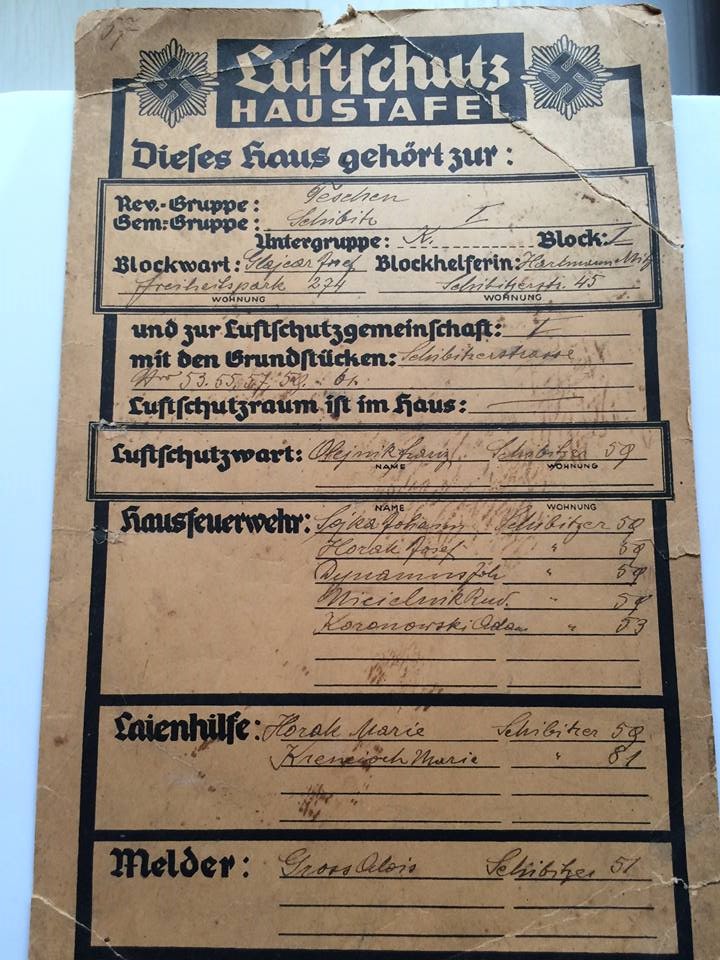 Luftschutz
HAUSTAFEL
Dieses Haus gehört zur:
Rev.-Gruppe: Teschen
Gem.-Gruppe: Schibitz I
Untergruppe: K. Block: I
Blockwart: Glajcar Josef Blockhelferin: Hartmann
Freiheitspark 274 Schibitzerstr. 45
WOHNUNG WOHNUNG
und zur Luftschutzgemeinschaft: I
mit den Grundstücken: Schibitzerstrasse
53. 55. 57. 59. 61.
Luftschutzraum ist im Haus:
Luftschutzwart: Olejnik Franz Schibitzer 59
NAME WOHNUNG
NAME WOHNUNG
Hausfeuerwehr: Sojka Johann Schibitzer 59
Horak Josef " 59
Joh. " 59
Rud. " 59
Koronowski Adam " 53
Laienhilfe: Horak Marie Schibitzer 59
Marie " 61
Melder: Gross Alois Schibitzer 51